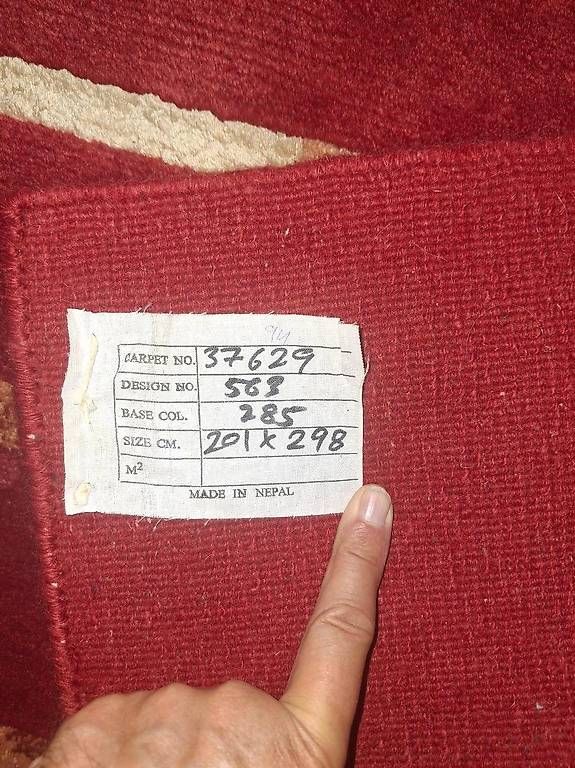 CARPET NO. 37629
DESIGN NO. 563
BASE COL. 285
SIZE CM. 201 x 298
M²
MADE IN NEPAL